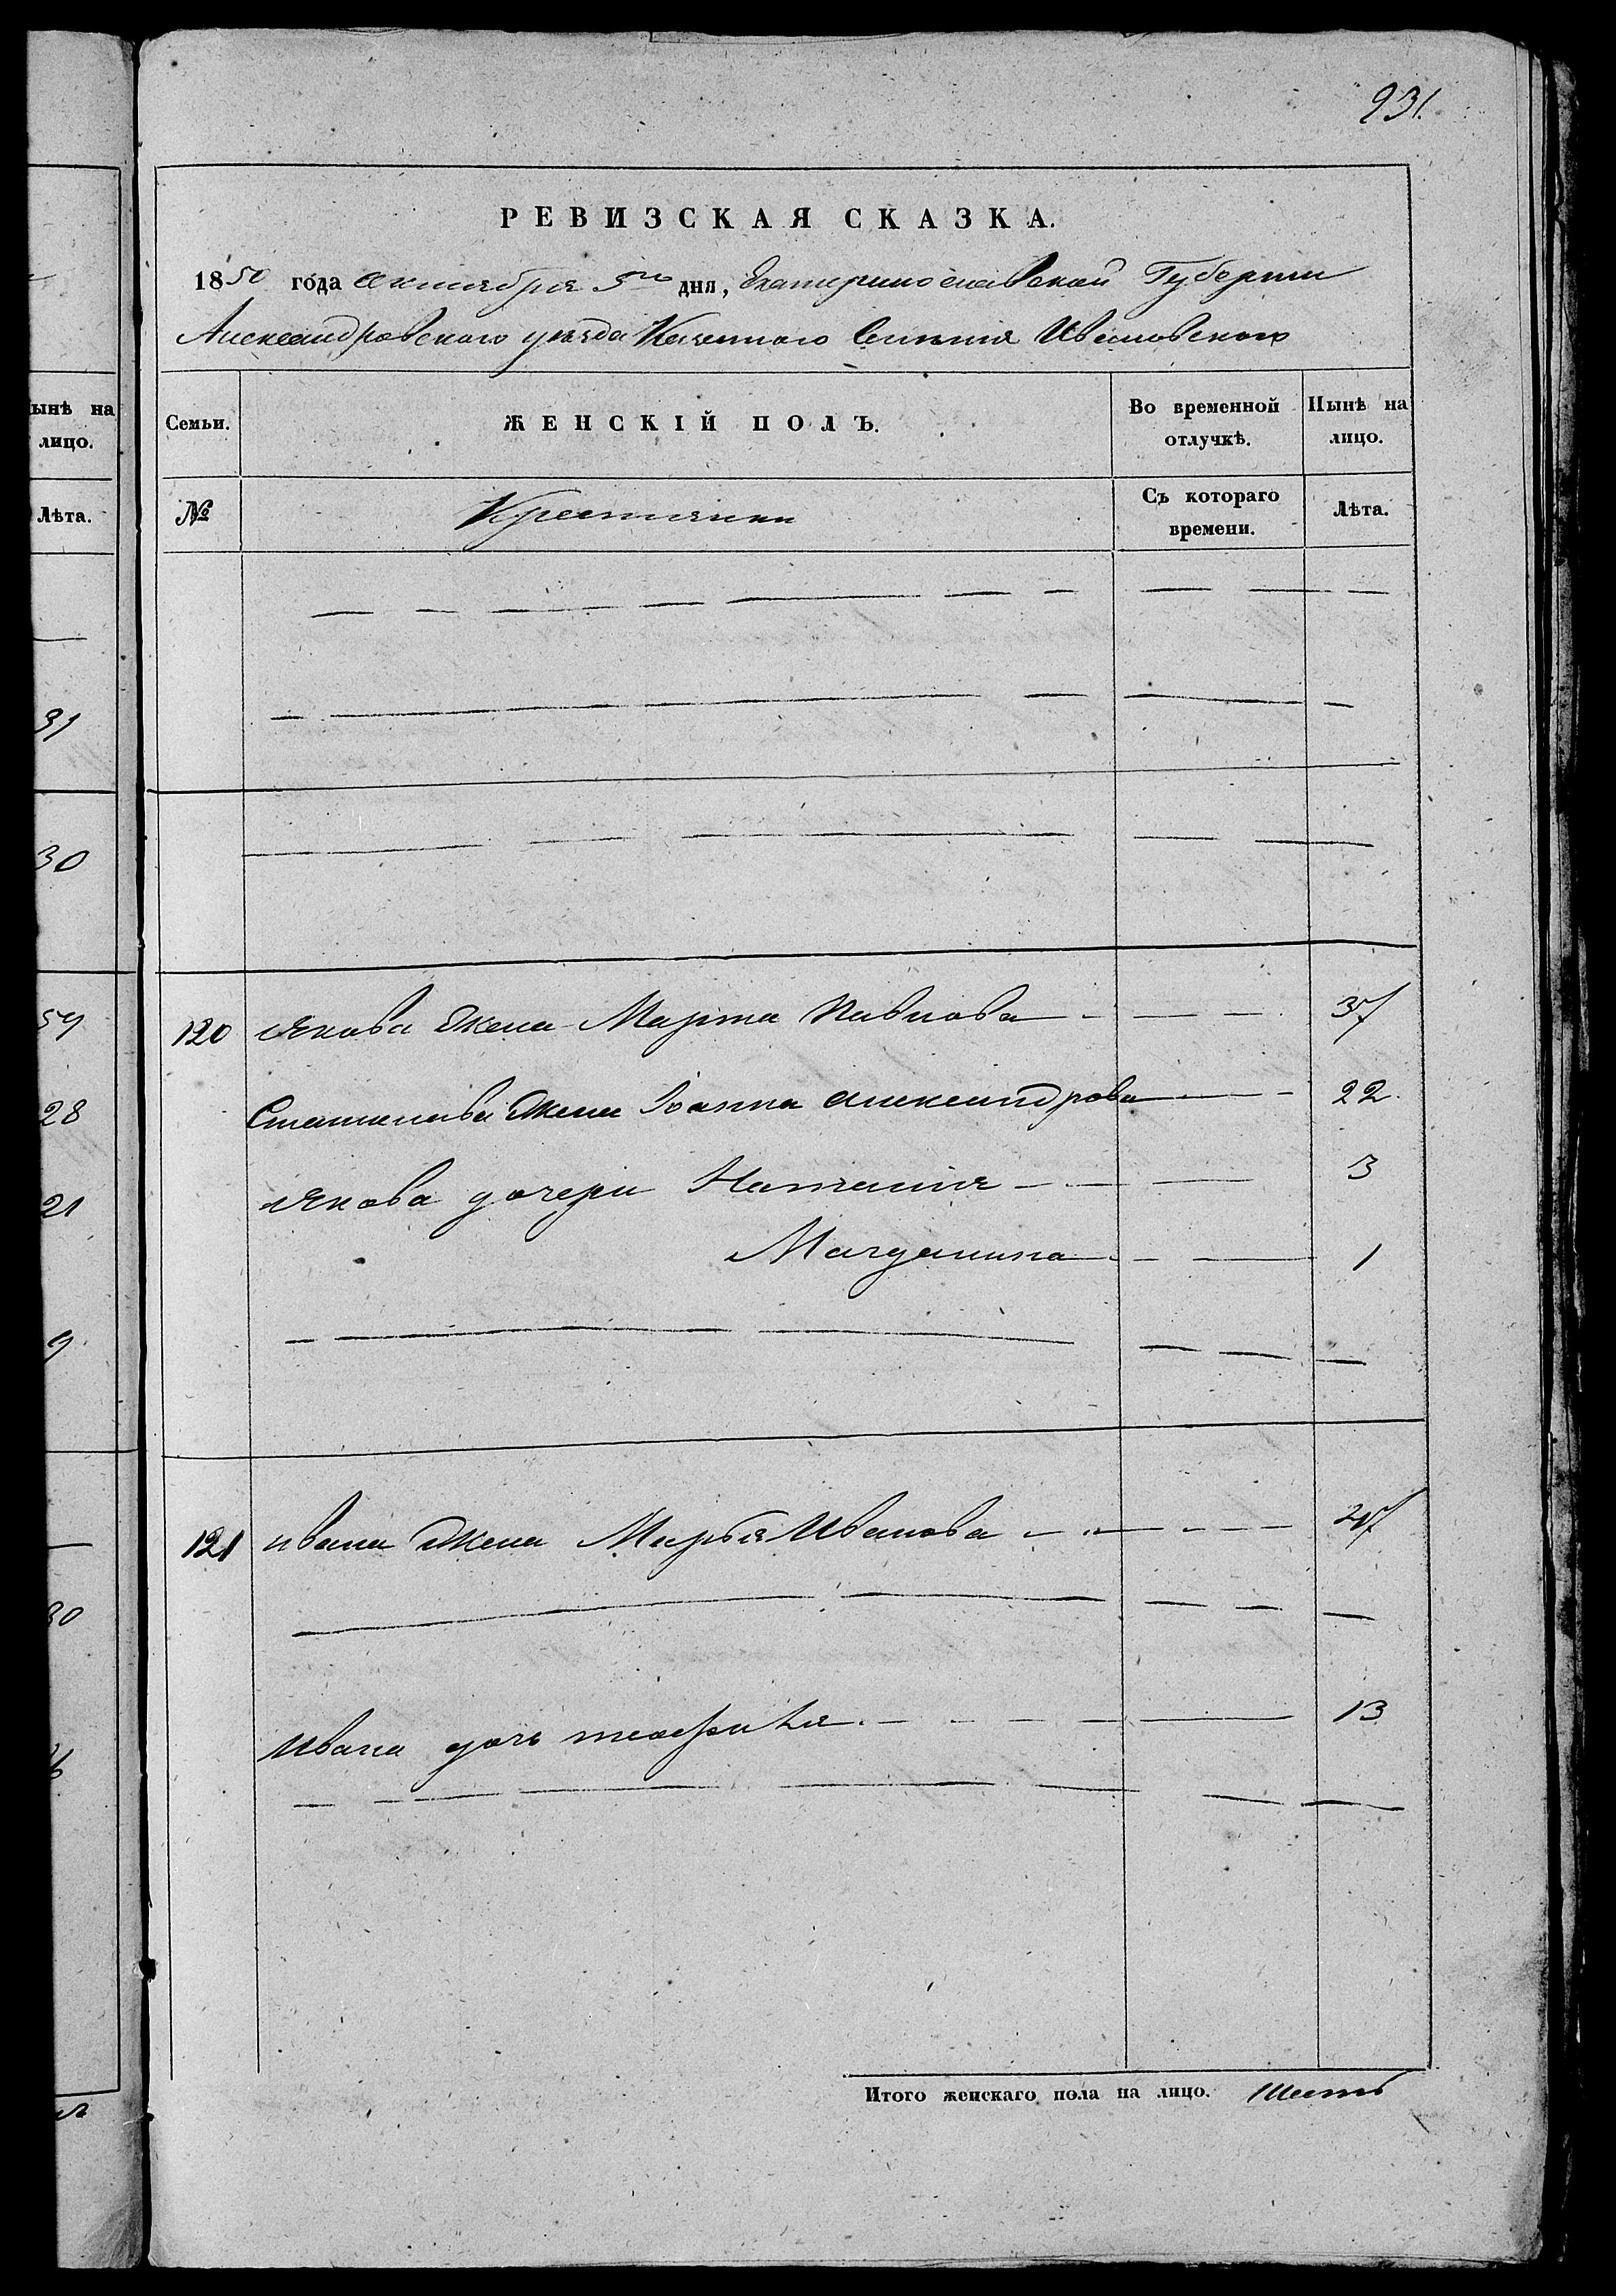 931.
РЕВИЗСКАЯ СКАЗКА.
1850 года октября 5го дня, Екатеринославской Губернии
Александровского уезда Казенного Селения Ивановского
ынѣ на
лицо.
Лѣта.
Семьи.
ЖЕНСКІЙ ПОЛЪ.
Во временной отлучкѣ.
Нынѣ на лицо.
№
Крестьянки
Съ котораго времени.
Лѣта.
31
30
28
21
9
120 Якова жена Марта Павлова 37
Станислава жена Іоанна Александрова 22
Якова дочери Наталия 3
Магдалина 1
121 Ивана жена Марья Иванова 47
Ивана дочь теофиля 13
Итого женскаго пола на лицо. Шесть